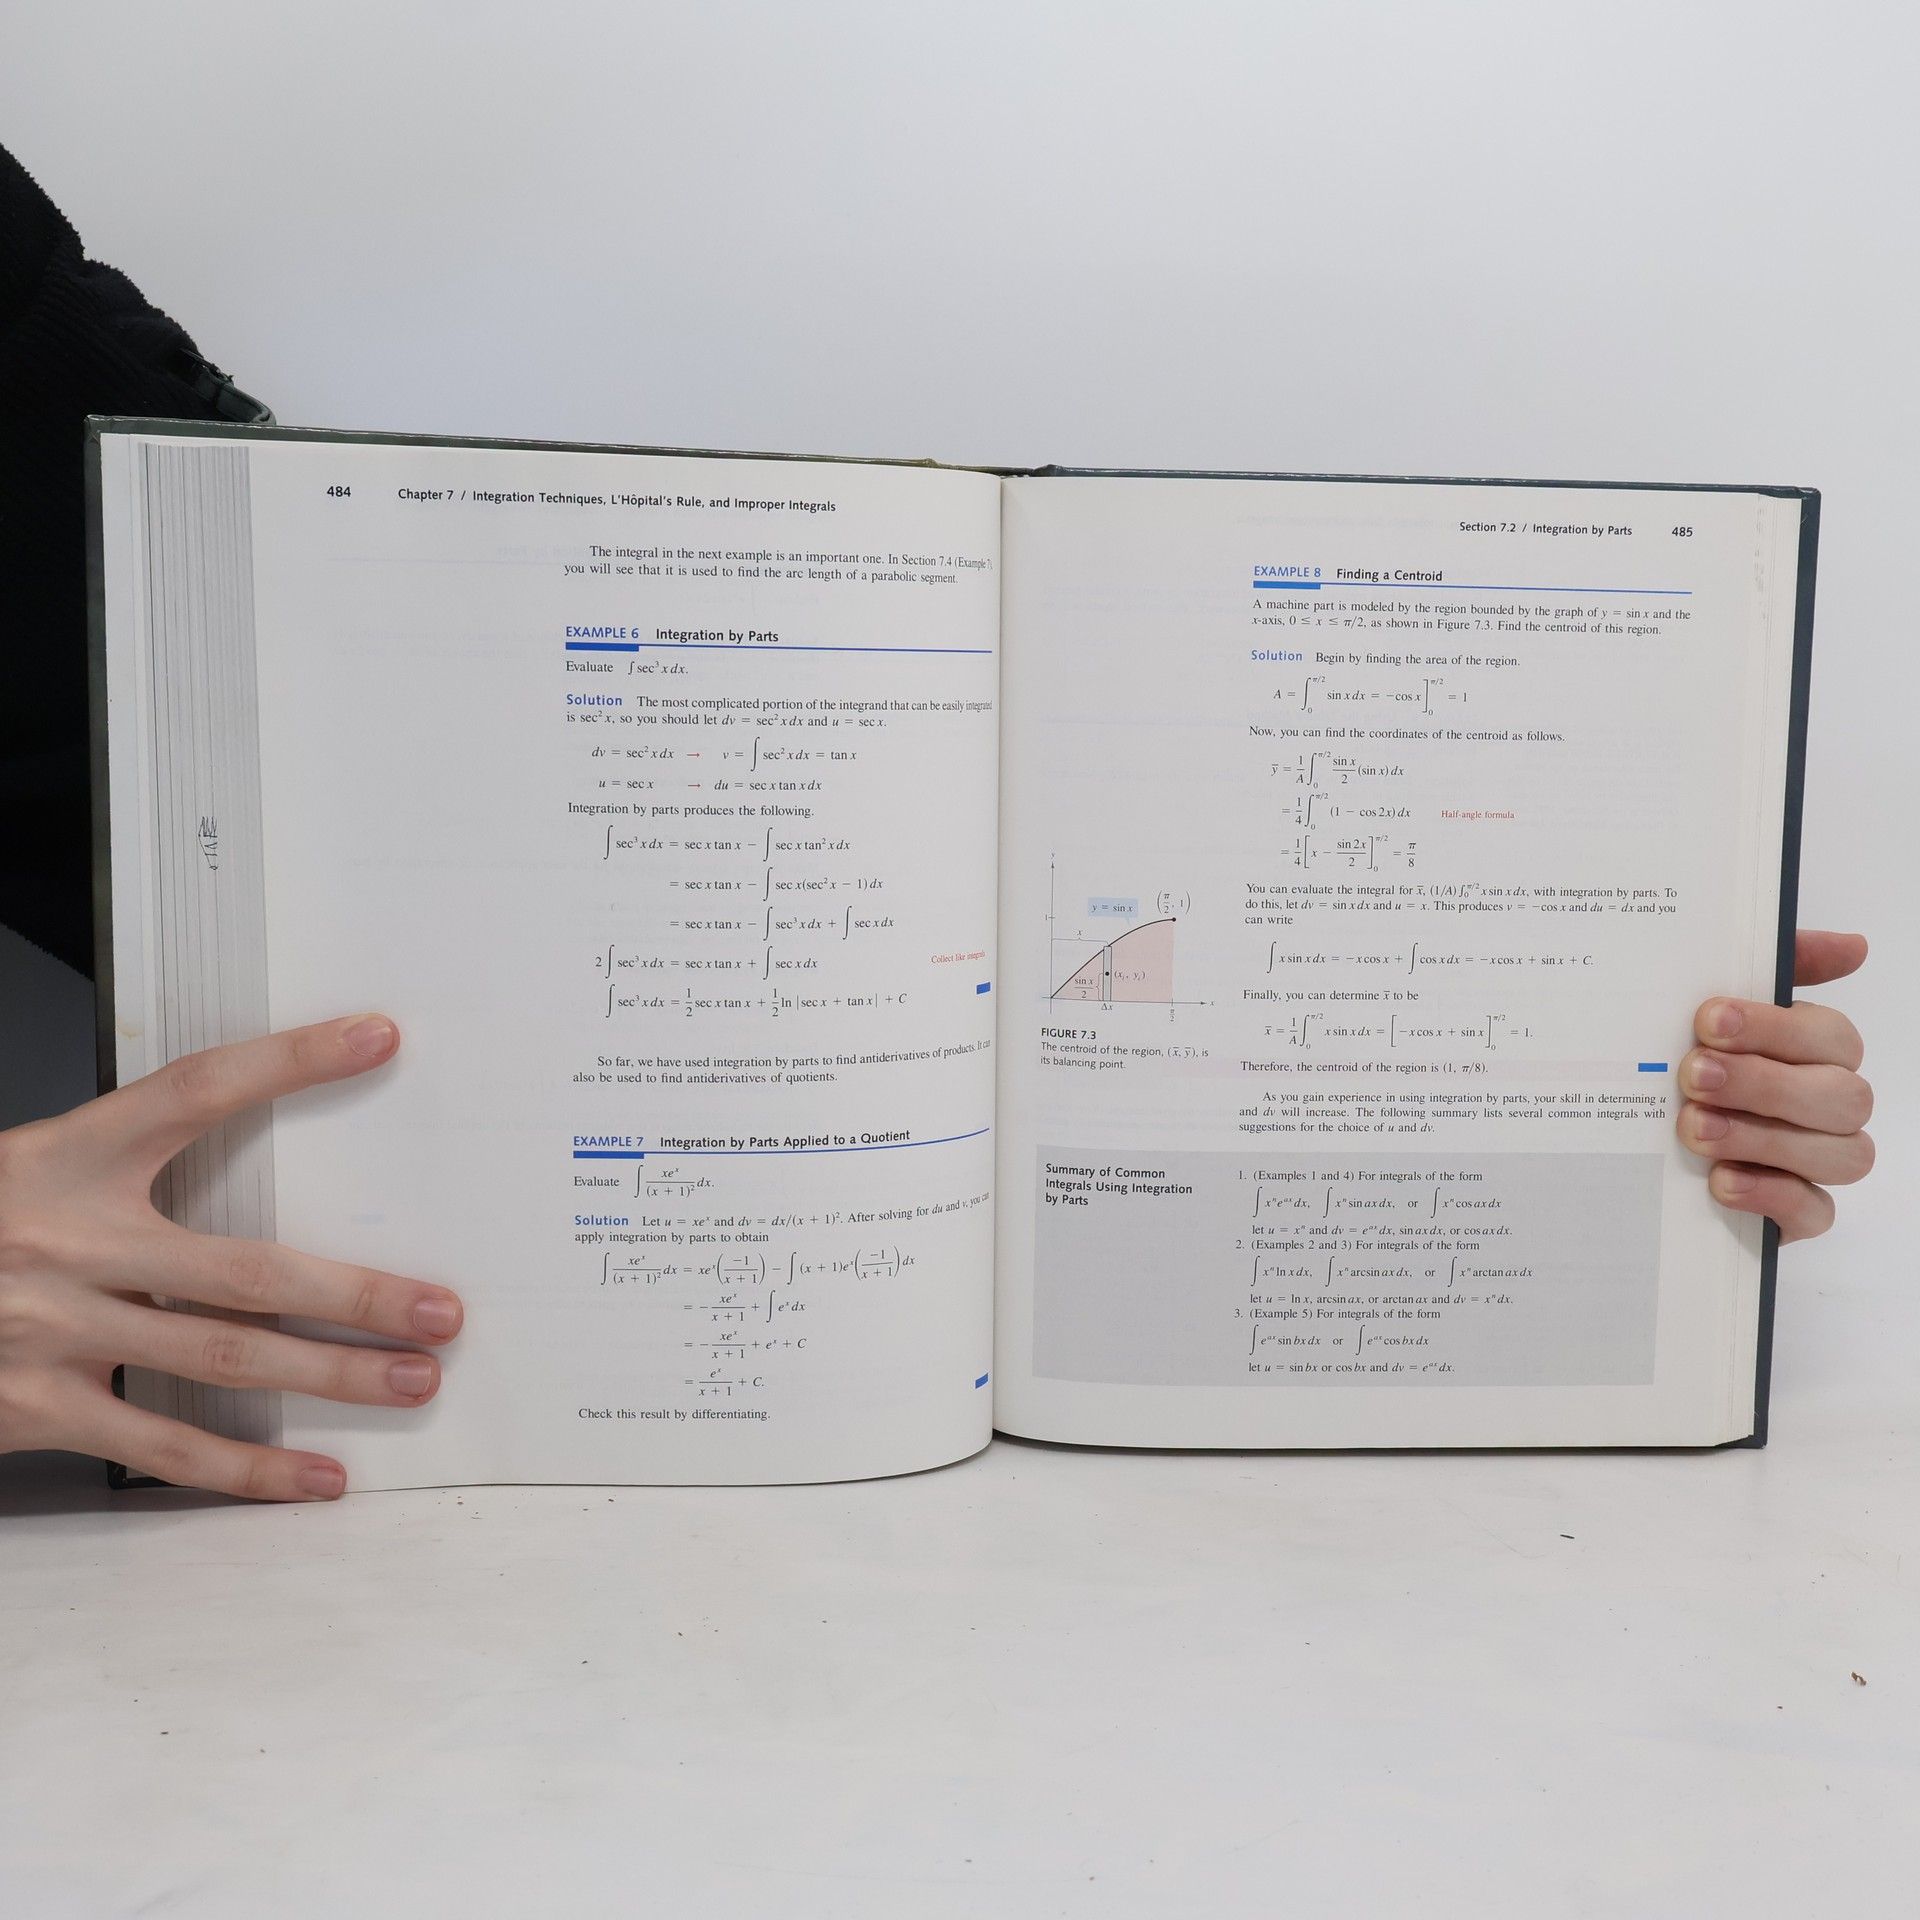 484 Chapter 7 / Integration Techniques, L'Hôpital's Rule, and Improper Integrals
The integral in the next example is an important one. In Section 7.4 (Example 7),
you will see that it is used to find the arc length of a parabolic segment.
EXAMPLE 6 Integration by Parts
Evaluate ∫ sec³ x dx.
Solution The most complicated portion of the integrand that can be easily integrated
is sec² x, so you should let dv = sec² x dx and u = sec x.
dv = sec² x dx → v = ∫ sec² x dx = tan x
u = sec x → du = sec x tan x dx
Integration by parts produces the following.
∫ sec³ x dx = sec x tan x − ∫ sec x tan² x dx
= sec x tan x − ∫ sec x(sec² x − 1) dx
= sec x tan x − ∫ sec³ x dx + ∫ sec x dx
2∫ sec³ x dx = sec x tan x + ∫ sec x dx Collect like integrals
∫ sec³ x dx = 1/2 sec x tan x + 1/2 ln |sec x + tan x| + C
So far, we have used integration by parts to find antiderivatives of products. It can
also be used to find antiderivatives of quotients.
EXAMPLE 7 Integration by Parts Applied to a Quotient
Evaluate ∫ xeˣ/(x + 1)² dx.
Solution Let u = xeˣ and dv = dx/(x + 1)². After solving for du and v, you can
apply integration by parts to obtain
∫ xeˣ/(x + 1)² dx = xeˣ(−1/(x + 1)) − ∫ (x + 1)eˣ(−1/(x + 1)) dx
= −xeˣ/(x + 1) + ∫ eˣ dx
= −xeˣ/(x + 1) + eˣ + C
= eˣ/(x + 1) + C.
Check this result by differentiating.
Section 7.2 / Integration by Parts 485
EXAMPLE 8 Finding a Centroid
A machine part is modeled by the region bounded by the graph of y = sin x and the
x-axis, 0 ≤ x ≤ π/2, as shown in Figure 7.3. Find the centroid of this region.
Solution Begin by finding the area of the region.
A = ∫₀^(π/2) sin x dx = −cos x]₀^(π/2) = 1
Now, you can find the coordinates of the centroid as follows.
y̅ = 1/A ∫₀^(π/2) sin x/2 (sin x) dx
= 1/4 ∫₀^(π/2) (1 − cos 2x) dx Half-angle formula
= 1/4 [x − sin 2x/2]₀^(π/2) = π/8
You can evaluate the integral for x̅, (1/A) ∫₀^(π/2) x sin x dx, with integration by parts. To
do this, let dv = sin x dx and u = x. This produces v = −cos x and du = dx and you
can write
∫ x sin x dx = −x cos x + ∫ cos x dx = −x cos x + sin x + C.
Finally, you can determine x̅ to be
x̅ = 1/A ∫₀^(π/2) x sin x dx = [−x cos x + sin x]₀^(π/2) = 1.
Therefore, the centroid of the region is (1, π/8).
As you gain experience in using integration by parts, your skill in determining u
and dv will increase. The following summary lists several common integrals with
suggestions for the choice of u and dv.
y
y = sin x (π/2, 1)
1
x
sin x/2 (xᵢ, yᵢ)
Δx π/2 x
FIGURE 7.3
The centroid of the region, (x̅, y̅), is
its balancing point.
Summary of Common
Integrals Using Integration
by Parts
1. (Examples 1 and 4) For integrals of the form
∫ xⁿeᵃˣ dx, ∫ xⁿ sin ax dx, or ∫ xⁿ cos ax dx
let u = xⁿ and dv = eᵃˣ dx, sin ax dx, or cos ax dx.
2. (Examples 2 and 3) For integrals of the form
∫ xⁿ ln x dx, ∫ xⁿ arcsin ax dx, or ∫ xⁿ arctan ax dx
let u = ln x, arcsin ax, or arctan ax and dv = xⁿ dx.
3. (Example 5) For integrals of the form
∫ eᵃˣ sin bx dx or ∫ eᵃˣ cos bx dx
let u = sin bx or cos bx and dv = eᵃˣ dx.